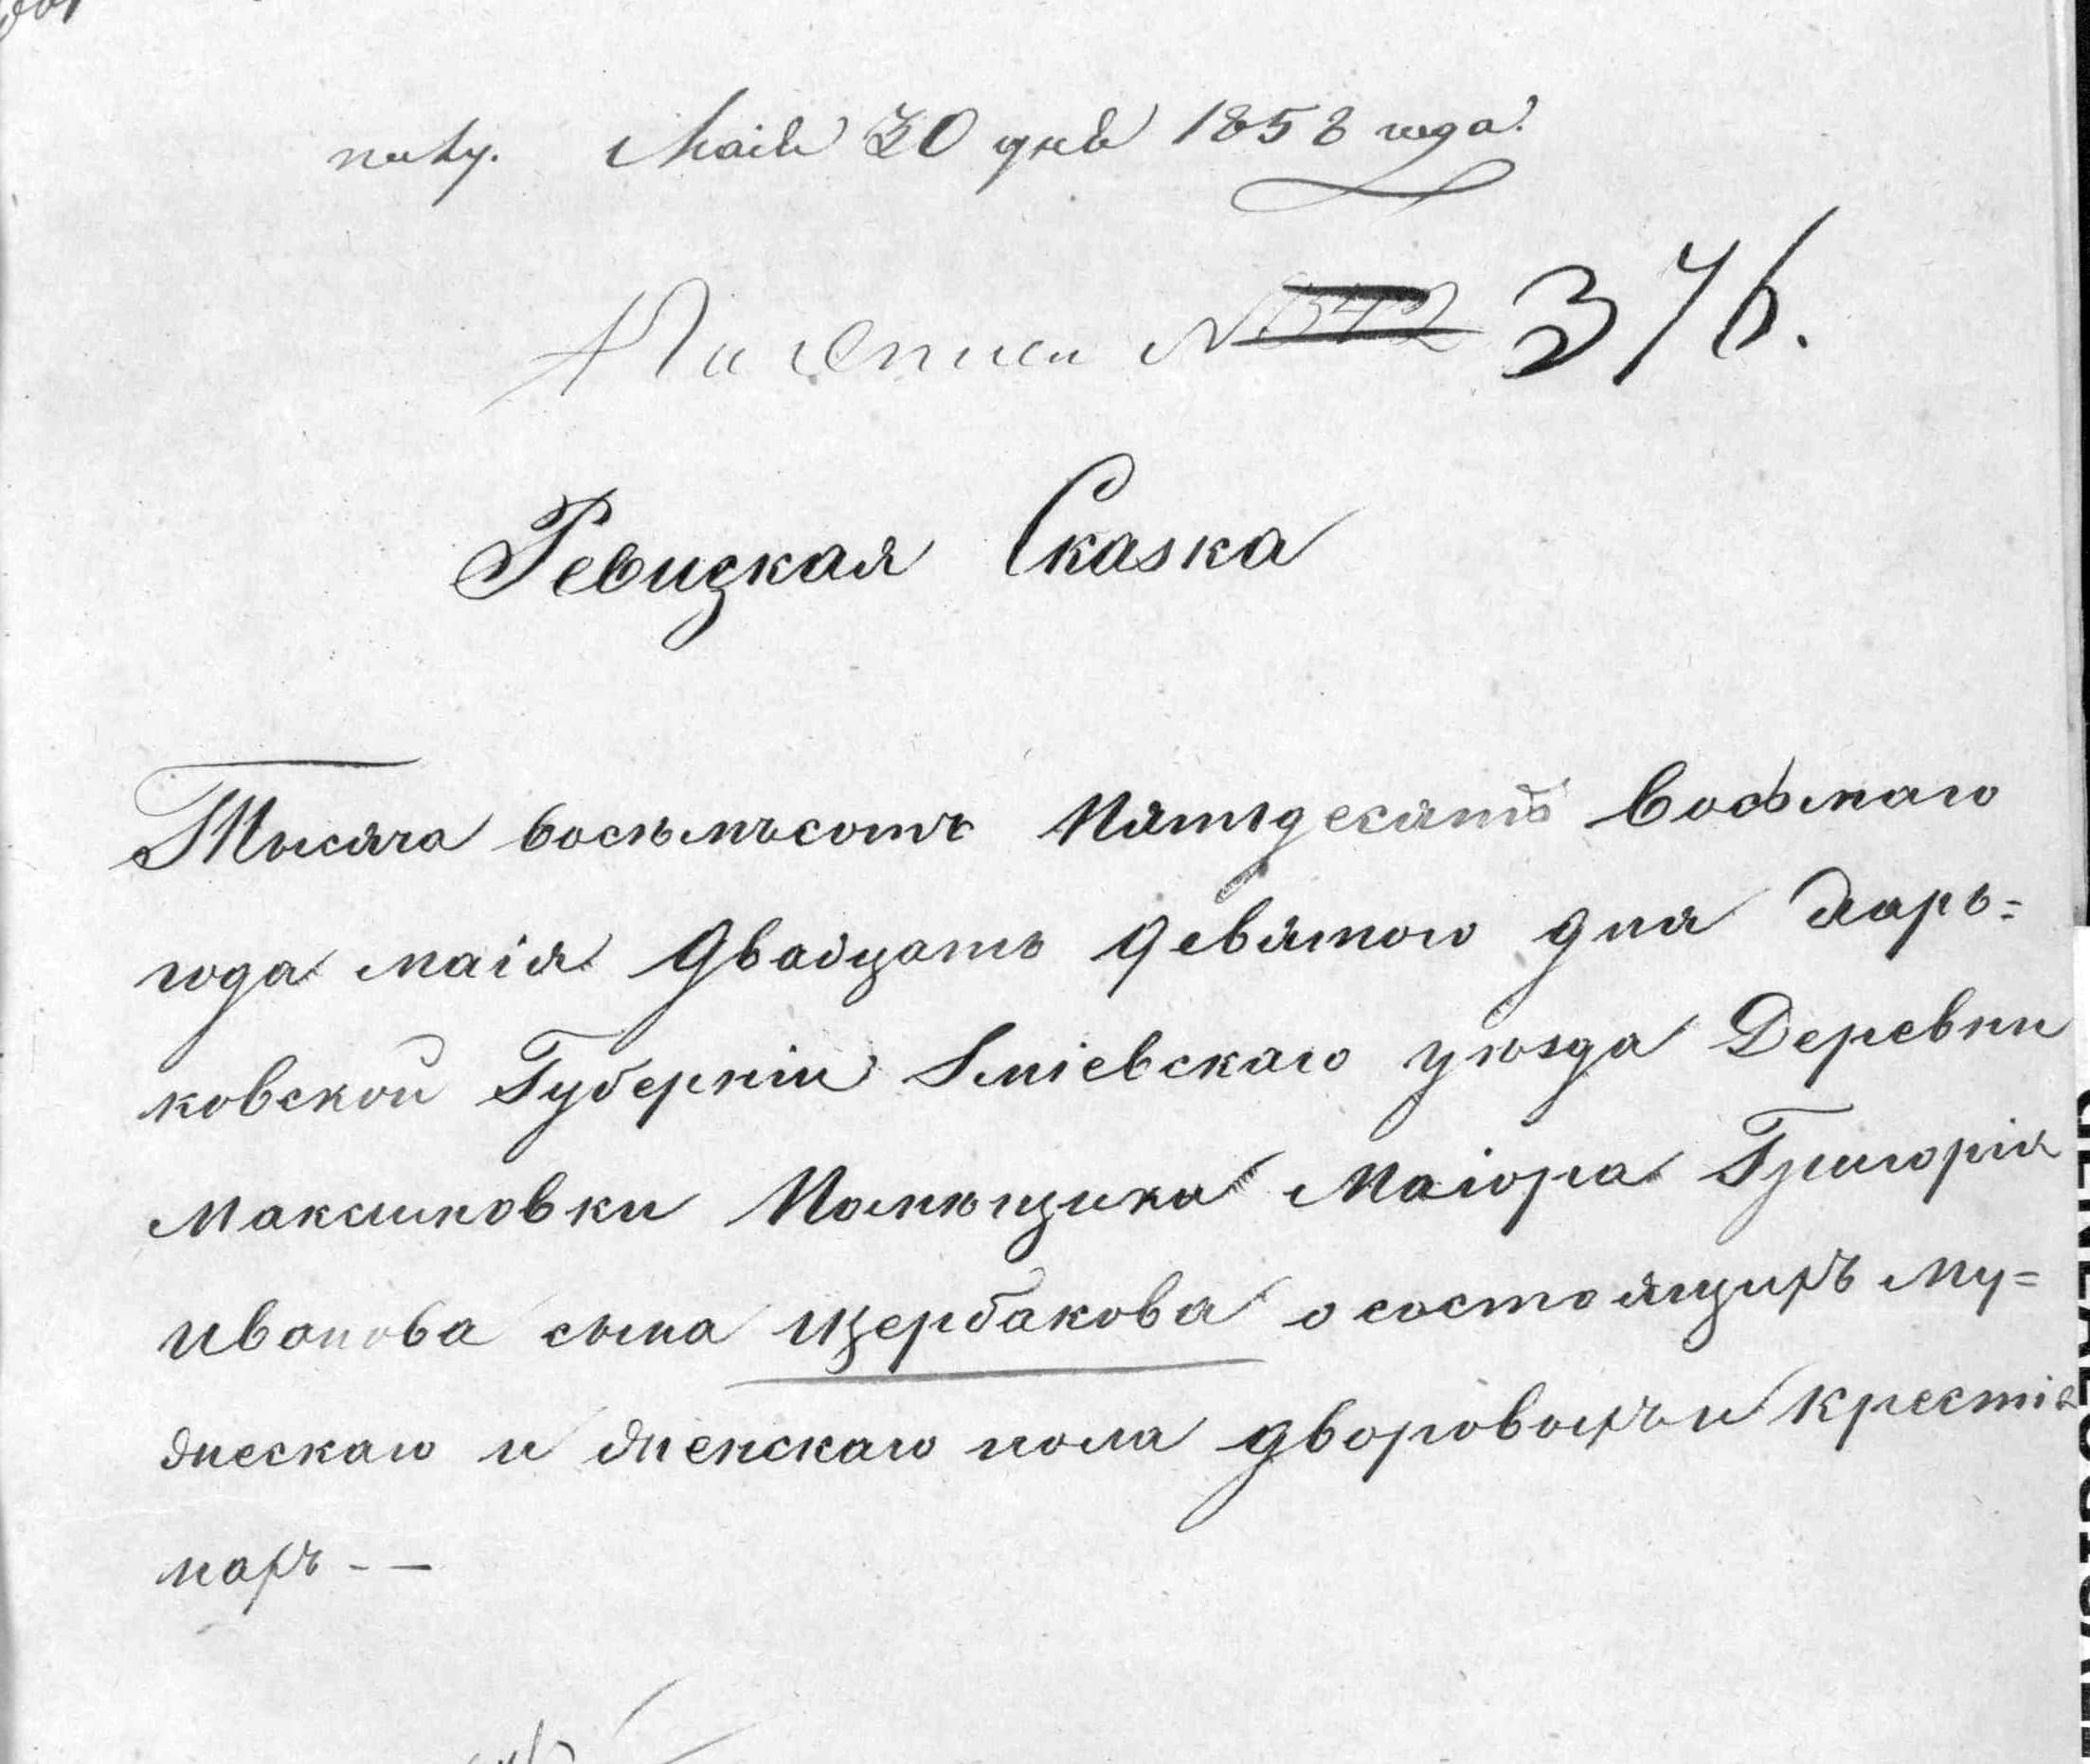 получ. Маія 30 дня 1858 года.
По описи № 376.
Ревизкая Сказка
Тысяча восемьсотъ Пятидесятъ Восьмаго
года маія Двадцать девятого дня Харь=
ковской Губерніи Зміевскаго уѣзда Деревни
Максимовки Помѣщика Маіора Григорія
иванова сына щербакова о состоящихъ му=
жескаго и женскаго пола дворовыхъ и крестья
нахъ - —